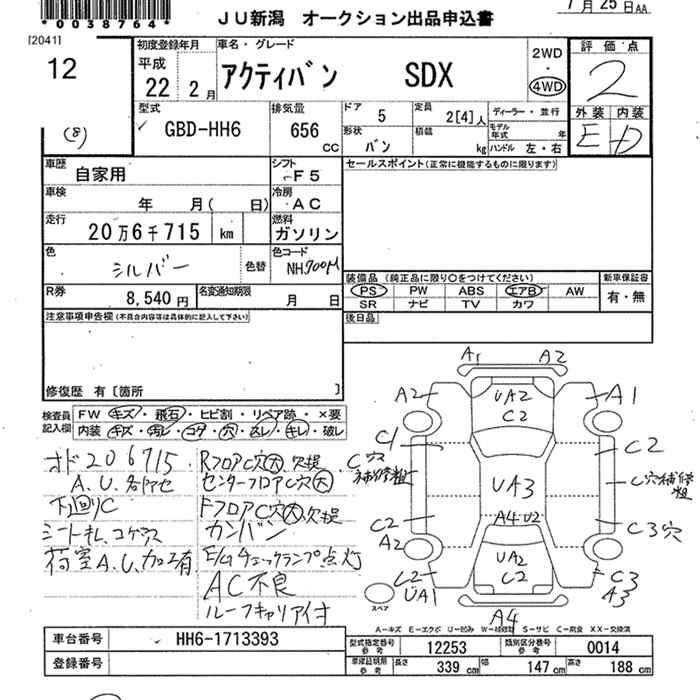 *0038764*
[2041]
JU新潟 オークション出品申込書
7月25日AA
12
(8)
初度登録年月
平成
22 2月
車名・グレード
アクティバン SDX
2WD
・
4WD
評価点
2
外装 内装
E D
型式
GBD-HH6
排気量
656 CC
ドア 5
定員 2[4]人
ディーラー・並行
形状 バン
積載 kg
モデル年式 年
ハンドル 左・右
車歴 自家用
シフト F5
セールスポイント(正常に機能するものに限ります)
車検 年 月( 日)
冷房 AC
走行 20万6千715 km
燃料 ガソリン
色 シルバー
色替
色コード NH700M
R券 8,540円
名変通知期限 月 日
装備品 (純正品に限り○をつけてください)
PS PW ABS エアB AW
SR ナビ TV カワ
新車保証書
有・無
後日品
注意事項申告欄(不具合内容等は具体的に記入して下さい)
修復歴 有 [箇所 ]
検査員記入欄
FW キズ・飛石・ヒビ割・リペア跡・×要
内装 キズ・汚レ・コゲ・穴・スレ・キレ・破レ
オド206715
A.U.各所セ
下廻りC
シートキレ、コゲ穴
荷室A.U.加工有
RフロアC穴大欠損
センターフロアC穴大
FフロアC穴大欠損
カンバン
E/Gチェックランプ点灯
AC不良
ルーフキャリア付
A1 A2
A2 UA2 A1
C2
C1 C2
C穴補修粗 UA3 C穴補修粗
C2 A4 U2 C3穴
A2 UA2
C2 C2 C3
UA1 A3
スペア
A4
A-キズ E-エクボ U-凹み W-補修跡 S-サビ C-腐食 XX-交換済
車台番号 HH6-1713393
登録番号
型式指定番号 参考 12253
類別区分番号 参考 0014
車庫証明用 参考 長さ 339cm 幅 147cm 高さ 188cm